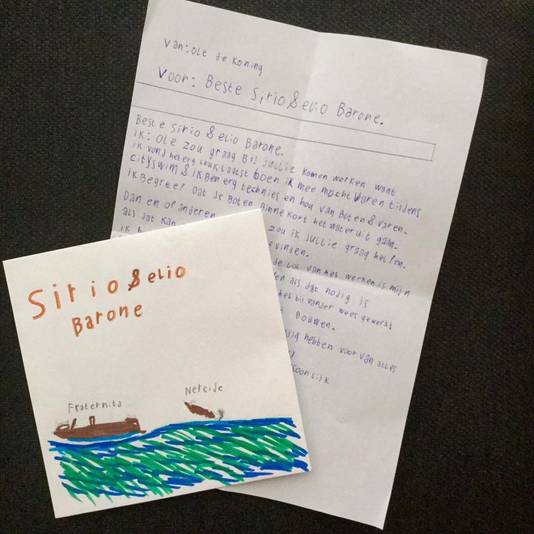 Van: Ole de Koning
Voor: Beste Sirio & elio Barone.
Beste Sirio & elio Barone.
ik: Ole zou graag Bij Jullie komen werken want
ik vond het erg leuk laatst toen ik mee mocht Varen tijdens
cityswim & ik Ben erg technies en hou van Boten & varen.
ik Begreep Dat Je Boten Binnekort het water uit gaan.
Dan en of anderen zou ik Jullie graag helpen.
als dat kan vinden.
werken is mijn
als dat nodig is
het bijzonder wees gewerkt
Bouwen.
hebben voor van alles
Sirio & elio
Barone
Fraternita
Nereide